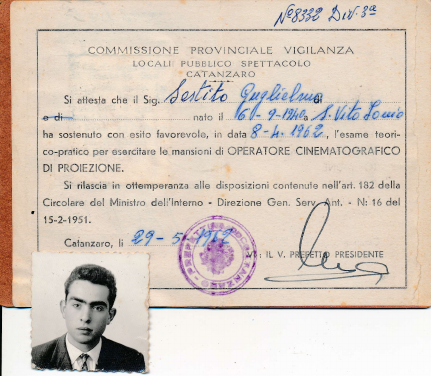 N° 8332 Div. 3ª
COMMISSIONE PROVINCIALE VIGILANZA
LOCALI PUBBLICO SPETTACOLO
CATANZARO
Si attesta che il Sig. Sestito Guglielmo di
e di nato il 6-9-1940 a S. Vito Jonio
ha sostenuto con esito favorevole, in data 8-4-1962, l'esame teori-
co-pratico per esercitare le mansioni di OPERATORE CINEMATOGRAFICO
DI PROIEZIONE.
Si rilascia in ottemperanza alle disposizioni contenute nell'art. 182 della
Circolare del Ministro dell'Interno - Direzione Gen. Serv. Ant. - N: 16 del
15-2-1951.
Catanzaro, li 29-5-1962
IL V. PREFETTO PRESIDENTE